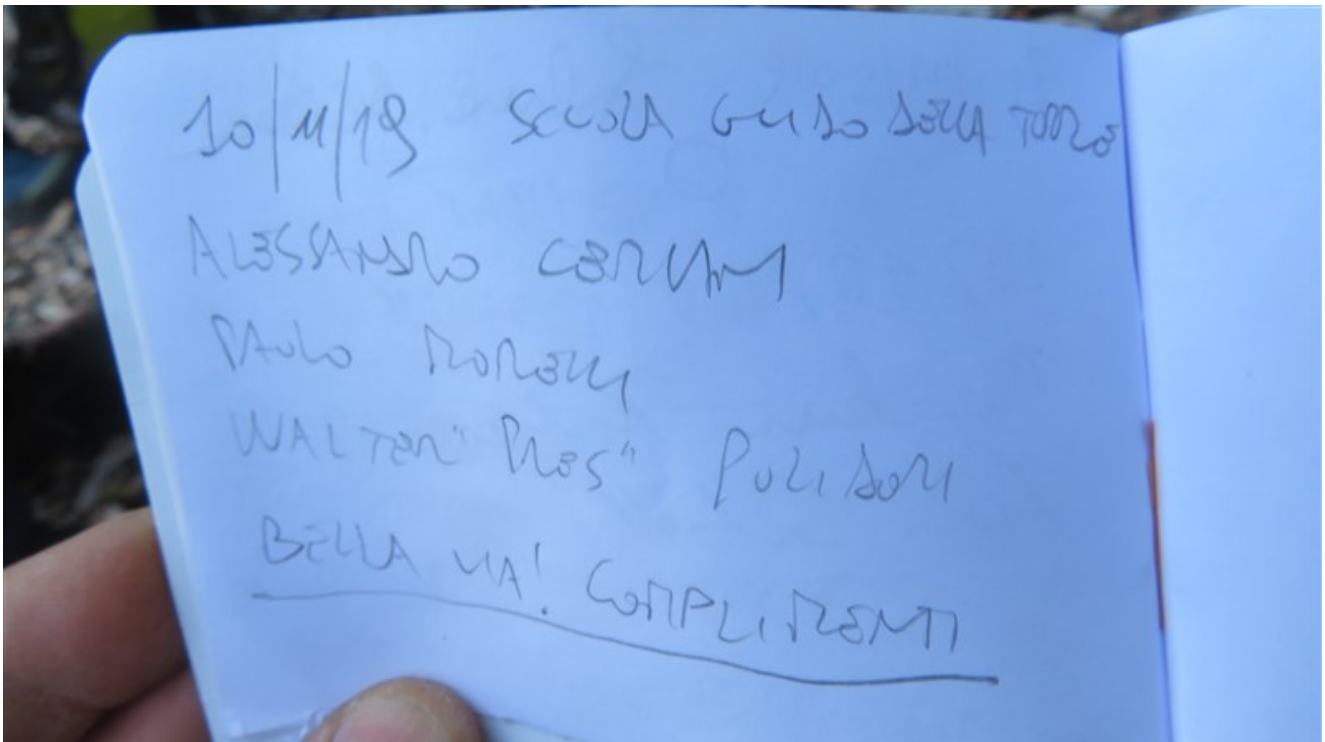 10/11/19 SCUOLA GUIDO DELLA TORRE
ALESSANDRO
PAOLO MORELLI
WALTER "PRES" POLIDORI
BELLA VIA! COMPLIMENTI